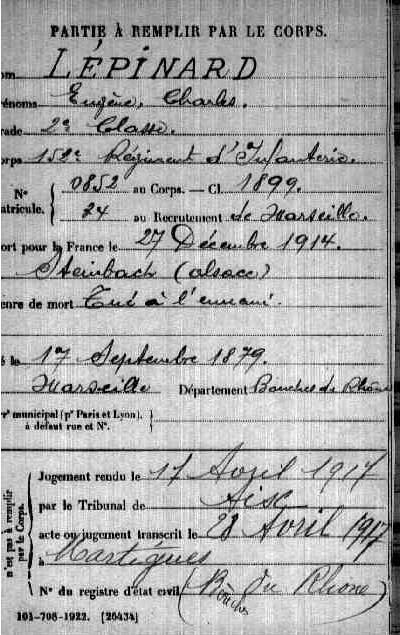 PARTIE À REMPLIR PAR LE CORPS.
om LÉPINARD
rénoms Eugène, Charles.
rade 2e Classe.
orps 152e Régiment d'Infanterie.
N° 0852 au Corps. — Cl. 1899.
atricule. 74 au Recrutement de Marseille.
ort pour la France le 27 Décembre 1914.
Steinbach (alsace)
enre de mort Tué à l'ennemi.
é le 17 Septembre 1879.
Marseille Département Bouches du Rhône
rr municipal (pr Paris et Lyon),
à défaut rue et N°.
n'est pas à remplir
par le Corps.
Jugement rendu le 17 Avril 1917
par le Tribunal de Aix
acte ou jugement transcrit le 28 Avril 1917
à Martigues
N° du registre d'état civil (Bouches du Rhone)
101-708-1922. [26434]